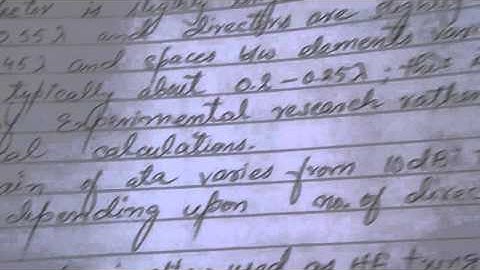 is slightly
0.55λ and directors are slightly
45λ and spaces b/w elements
typically about 0.2-0.25λ; this
experimental research rather
al calculations.
ain of ata varies from 10dB
depending upon no. of direc
used as HF